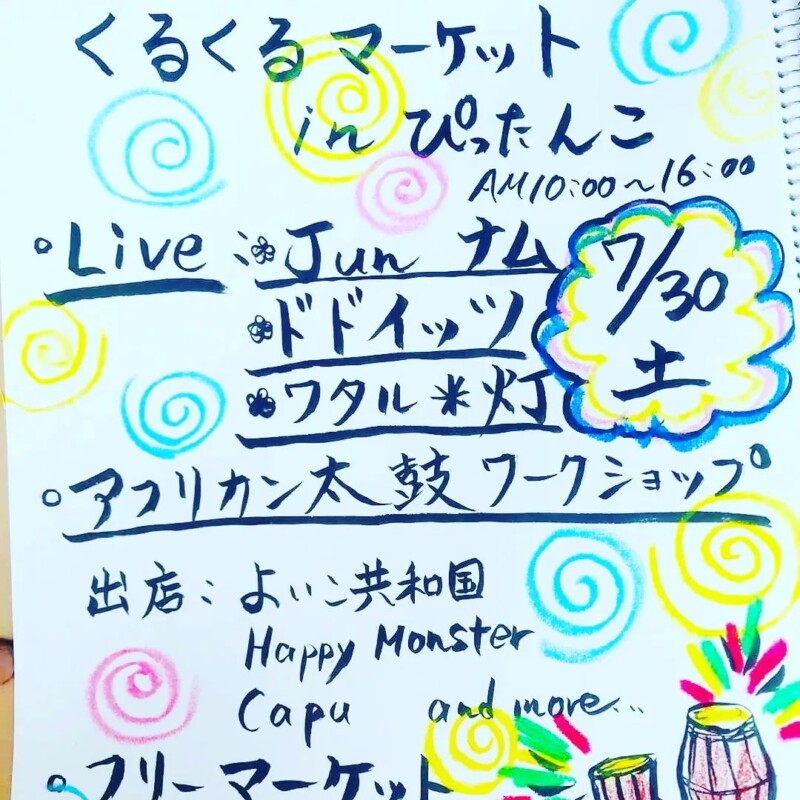 くるくるマーケット
in ぴったんこ
AM10:00~16:00
7/30
土
。Live:❀Jun ナム
❀ドドイッツ
❀ワタル*灯
。アフリカン太鼓ワークショップ
出店:よいこ共和国
Happy Monster
Capu and more...
。フリーマーケット